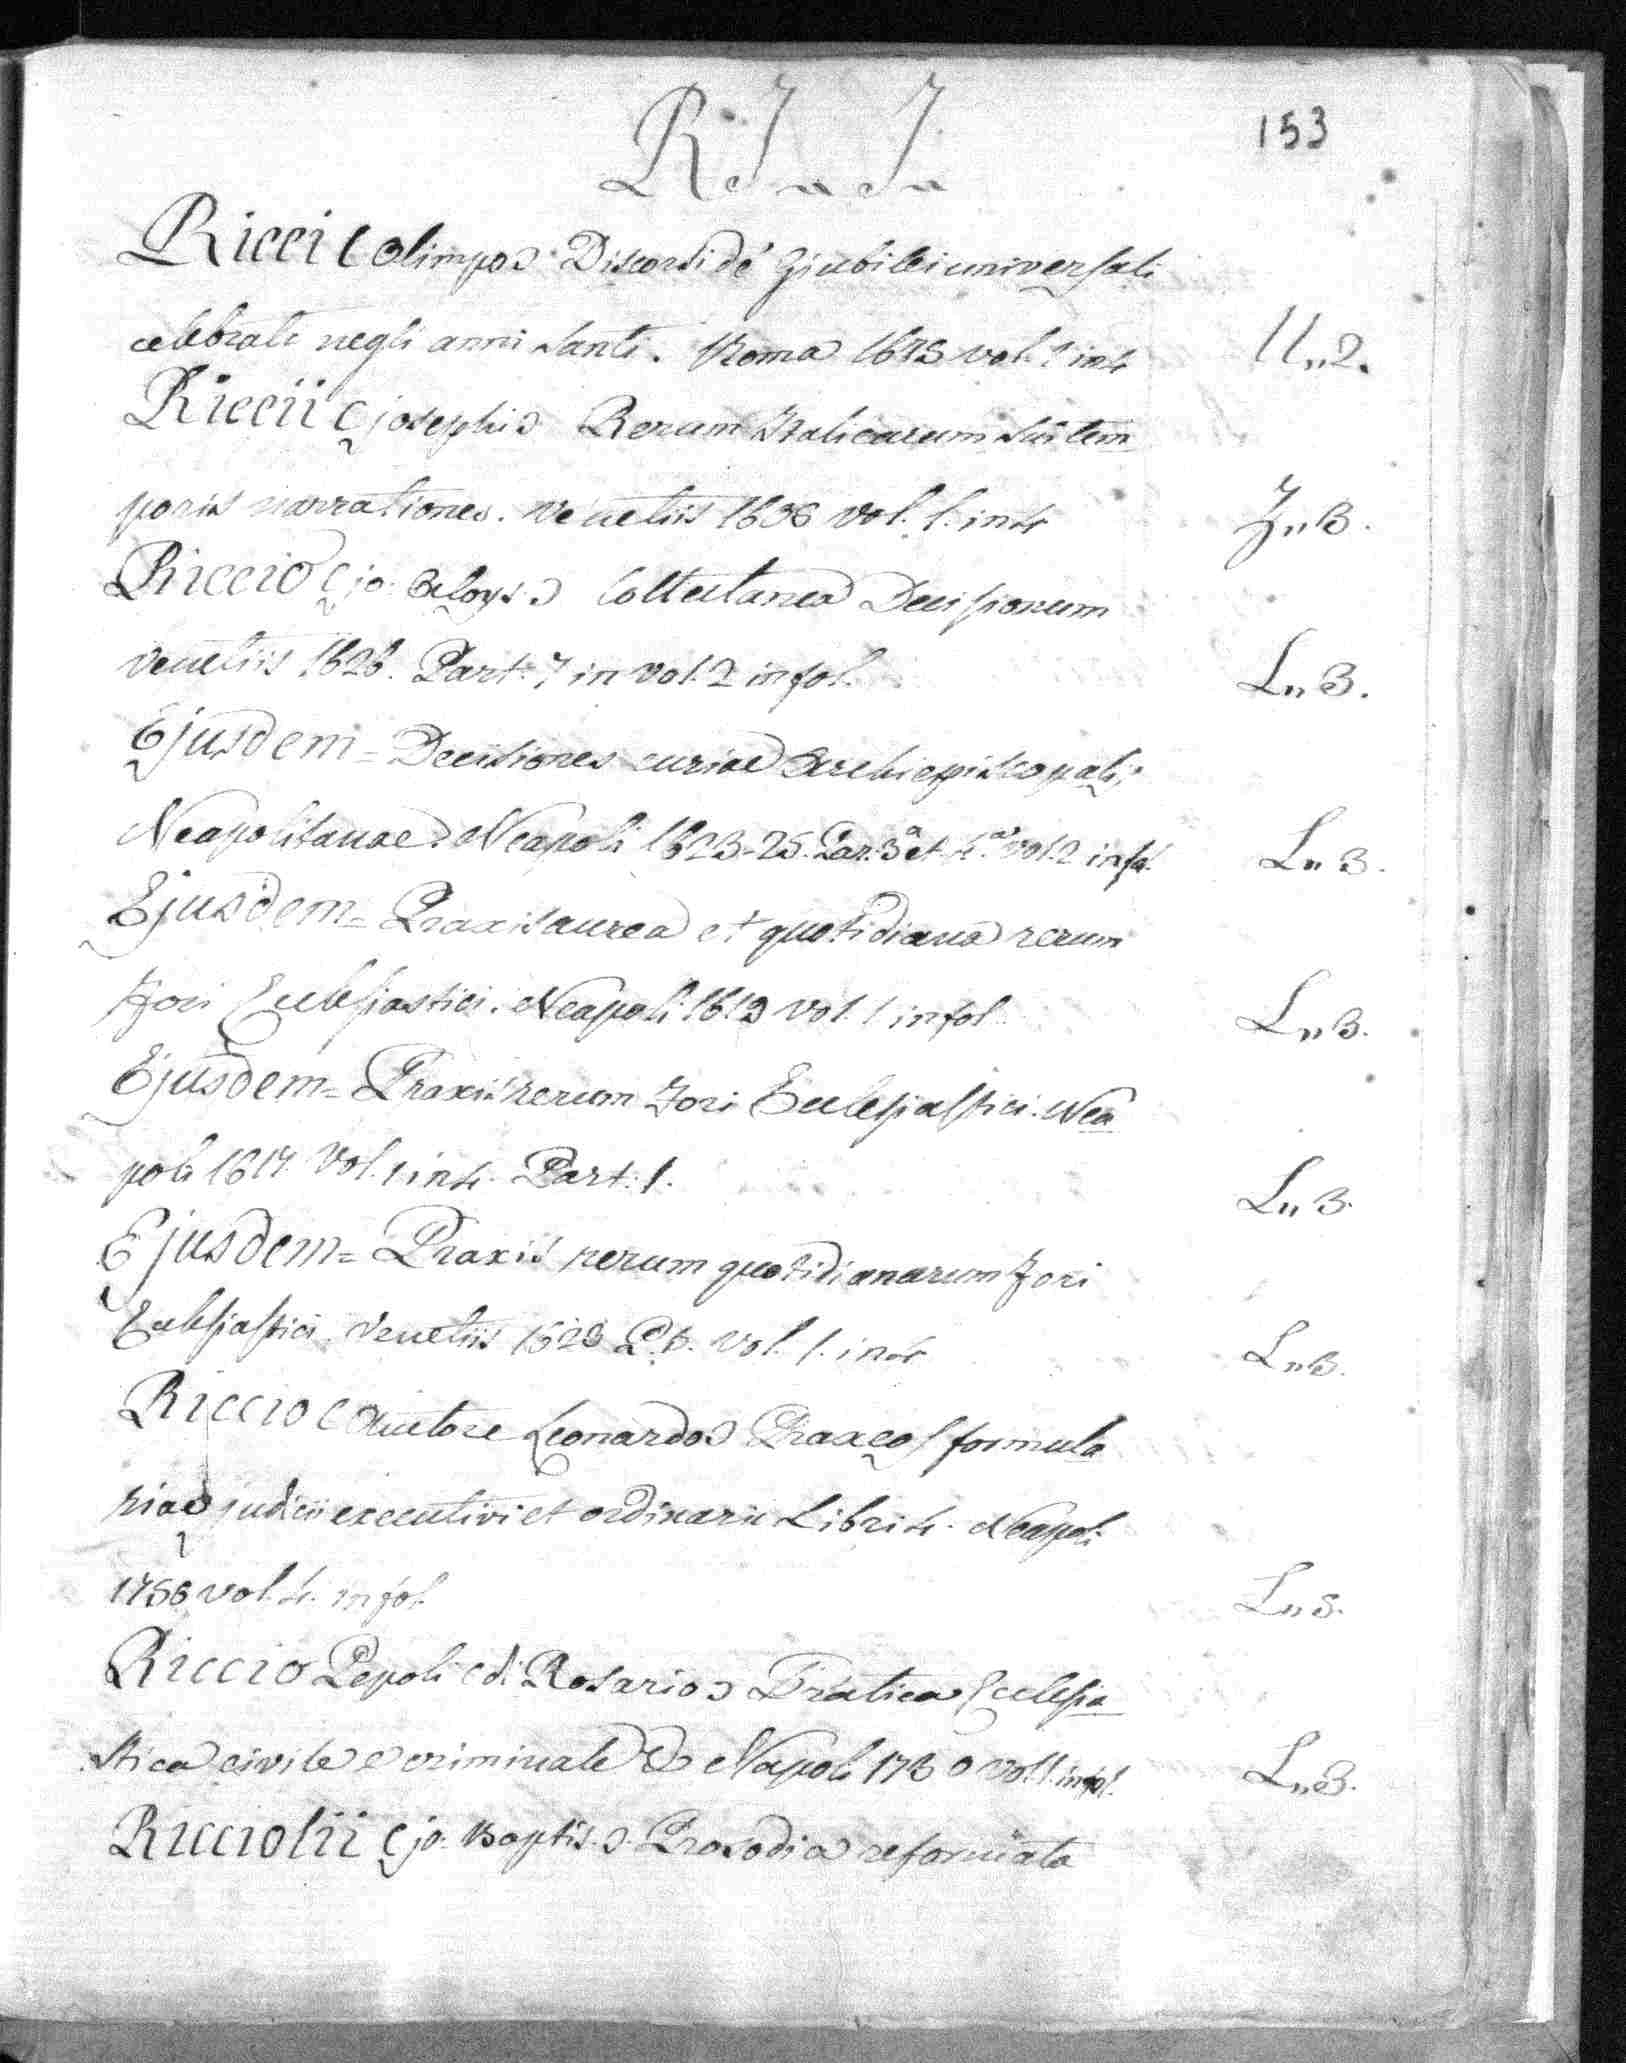 R I „ I „
153
Ricci (Olimpo) Discorsi dé Giubilei universali
celebrati negli anni Santi. Roma 1675 vol. 1 in 4
U „ 2.
Riccii (josephi) Rerum Italicarum sui tem
poris narrationes. Venetiis vol. 1. in 4
Z „ 3.
Riccio (jo: Aloys:) Collectanea Decisionum
Venetiis 1626. Part: 7 in vol. 2 in fol.
L „ 3.
Ejusdem = Decisiones curiae Archiepiscopalis
Neapolitanae. Neapoli 1623-25. Par: 3ª et 4ª vol. 2 in fol.
L „ 3.
Ejusdem = Praxis aurea et quotidiana rerum
Fori Ecclesiastici. Neapoli vol. 1 in fol.
L „ 3.
Ejusdem = Praxis rerum Fori Ecclesiastici. Nea
poli 1617. Vol. 1 in 4. Part: 1.
L „ 3.
Ejusdem = Praxis rerum quotidianarum Fori
Ecclesiastici. Venetiis vol. 1. in 4
L „ 3.
Riccio (Auctore Leonardo) Praxeos formula
riae judicii executivi et ordinarii Libri 4. Neapoli
1756 vol. 4. in fol.
L „ 5.
Riccio Pepoli (di Rosario) Pratica Ecclesia
stica civile e criminale & Napoli 1730 vol. 1. in fol.
L „ 3.
Ricciolii (jo: Baptis:) Prosodia reformata